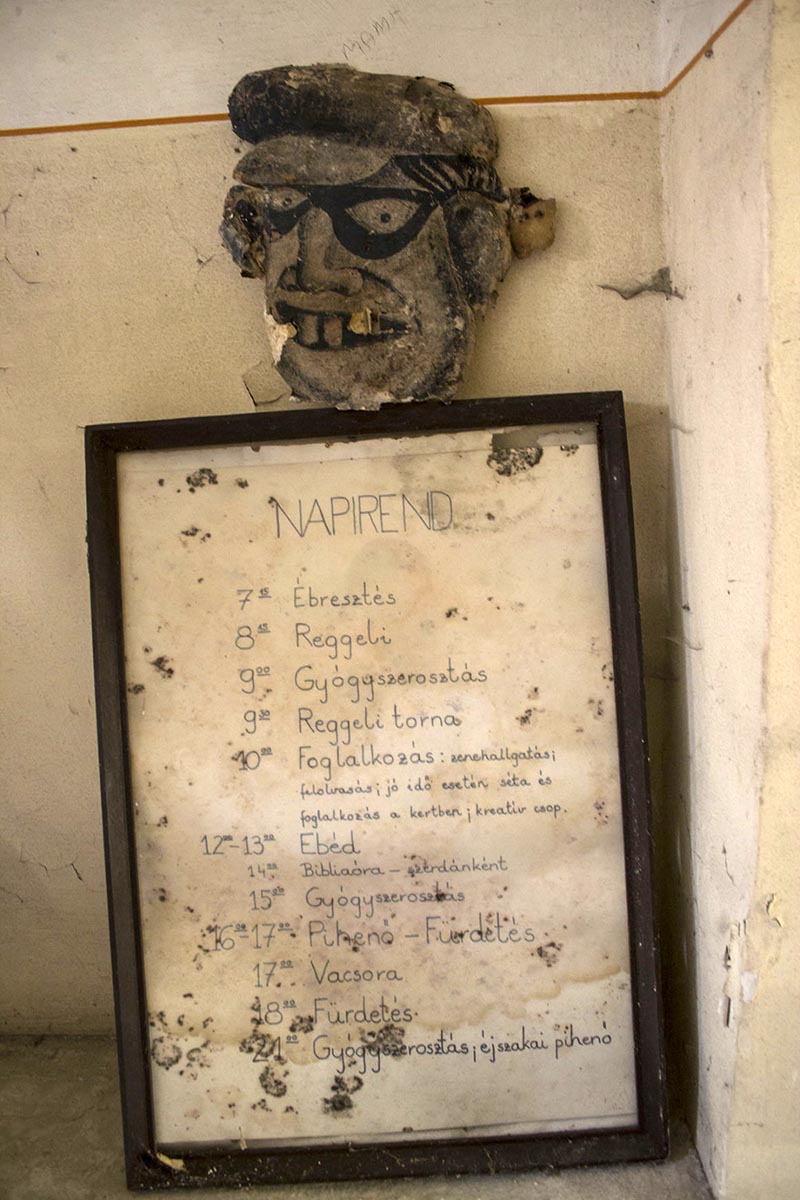 NAPIREND
7 15 Ébresztés
8 45 Reggeli
9 00 Gyógyszerosztás
9 30 Reggeli torna
10 00 Foglalkozás: zenehallgatás;
felolvasás; jó idő esetén séta és
foglalkozás a kertben; kreatív csop.
12 00-13 00 Ebéd
14 00 Bibliaóra – szerdánként
15 00 Gyógyszerosztás
16 00-17 00 Pihenő – Fürdetés
17 00 Vacsora
18 00 Fürdetés
21 00 Gyógyszerosztás; éjszakai pihenő